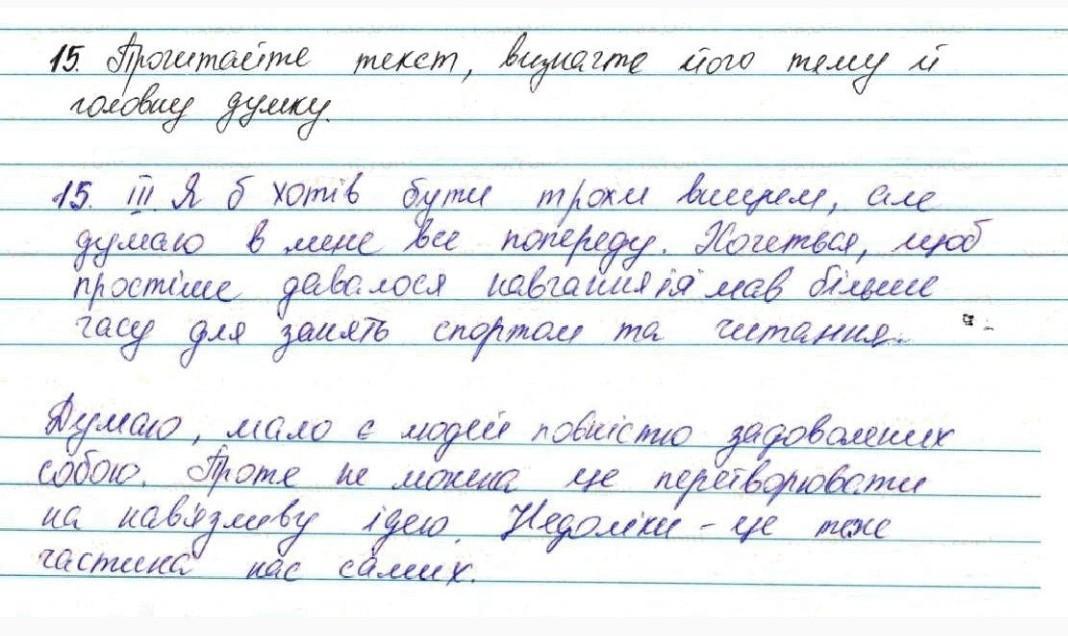 15. Прочитайте текст, визначте його тему й
головну думку.
15. III Я б хотів бути трохи вищим, але
думаю в мене все попереду. Хочеться, щоб
простіше давалося навчання і я мав більше
часу для занять спортом та читання.
Думаю, мало є людей повністю задоволених
собою. Проте не можна це перетворювати
на нав'язливу ідею. Недоліки – це теж
частина нас самих.